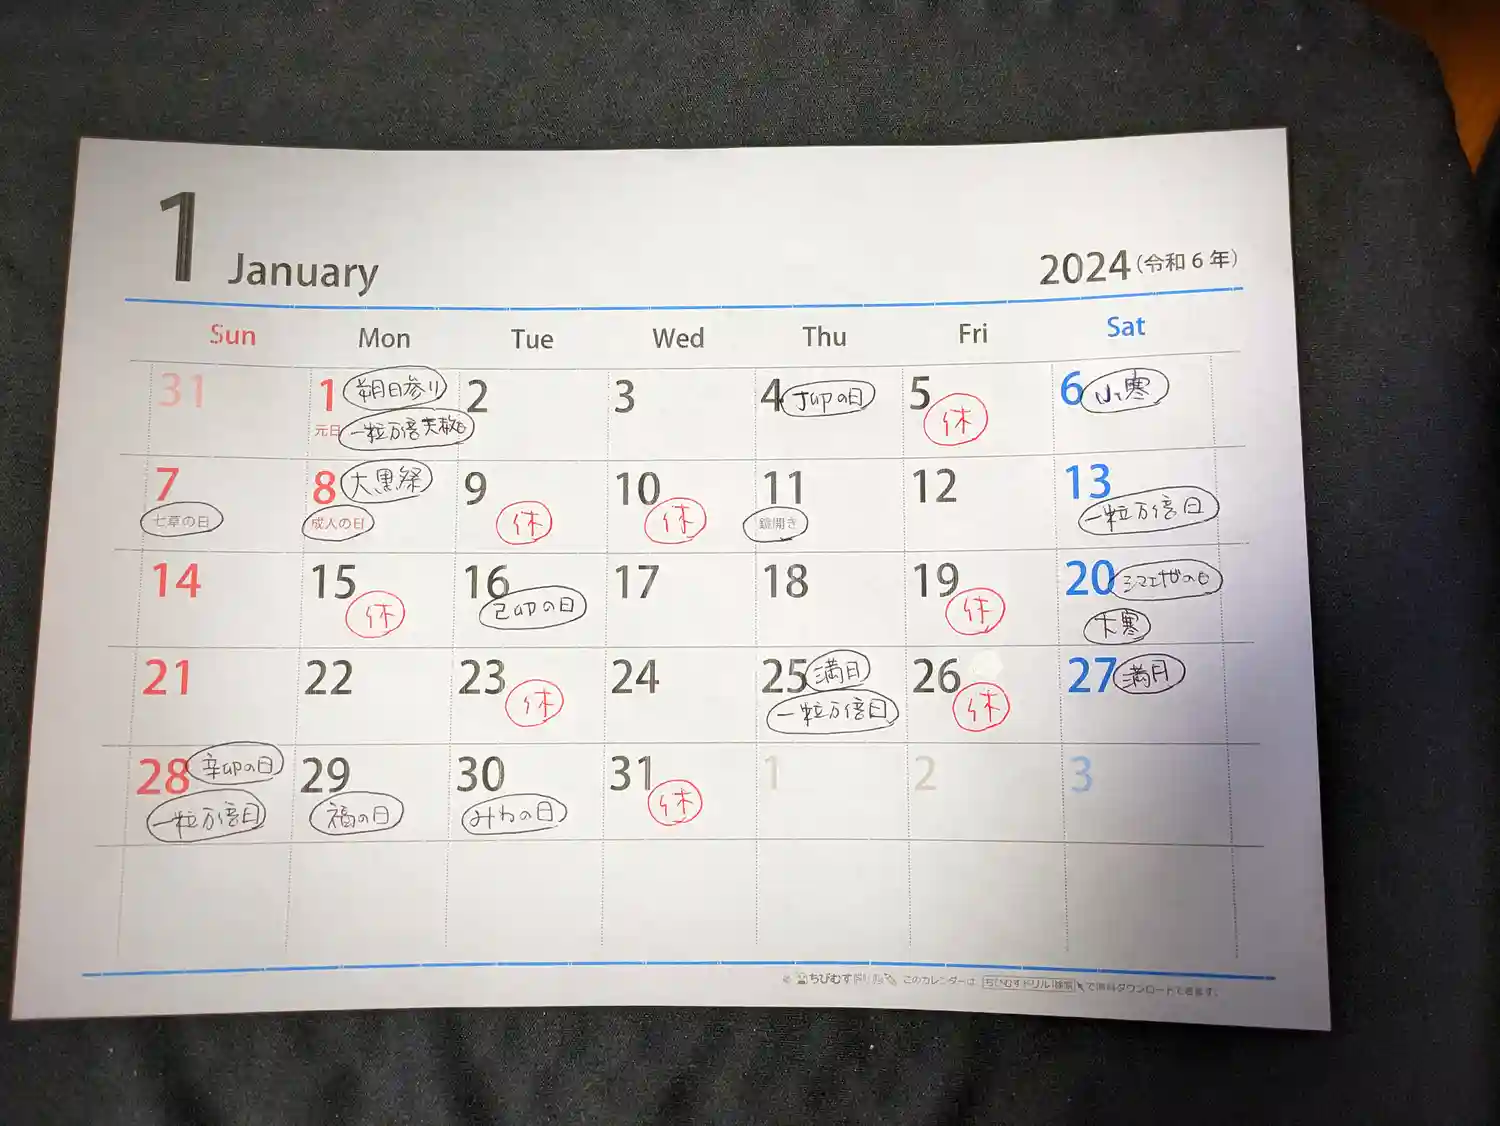 1 January
2024(令和6年)
Sun Mon Tue Wed Thu Fri Sat
31 1 朔日参り 2 3 4 丁卯の日 5 6 小寒
元日 一粒万倍 休
7 8 大黒祭 9 10 11 12 13
七草の日 成人の日 休 休 鏡開き 一粒万倍日
14 15 16 17 18 19 20 シマエナガの日
休 己卯の日 休 大寒
21 22 23 24 25 満月 26 27 満月
休 一粒万倍日 休
28 辛卯の日 29 30 31 1 2 3
一粒万倍日 福の日 みその日 休
ちびむすドリル このカレンダーは ちびむすドリル 検索 で無料ダウンロードできます。